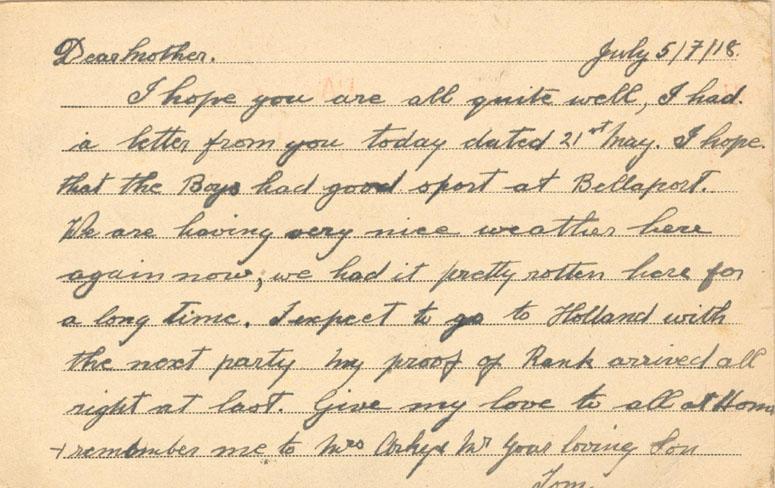 Dear Mother. July 5/7/18.
I hope you are all quite well, I had
a letter from you today dated 21st May. I hope
that the Boys had good sport at Bellaport.
We are having very nice weather here
again now, we had it pretty rotten here for
a long time. I expect to go to Holland with
the next party my proof of Rank arrived all
right at last. Give my love to all at Home
+ remember me to Mrs & Mr Your loving Son
Tom.